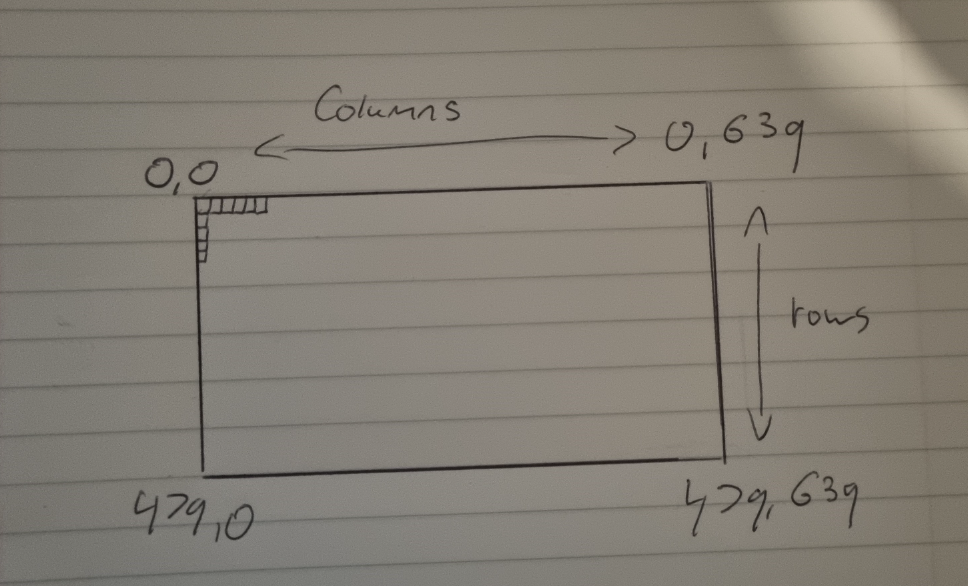 Columns
0,0
0,639
rows
479,0
479,639